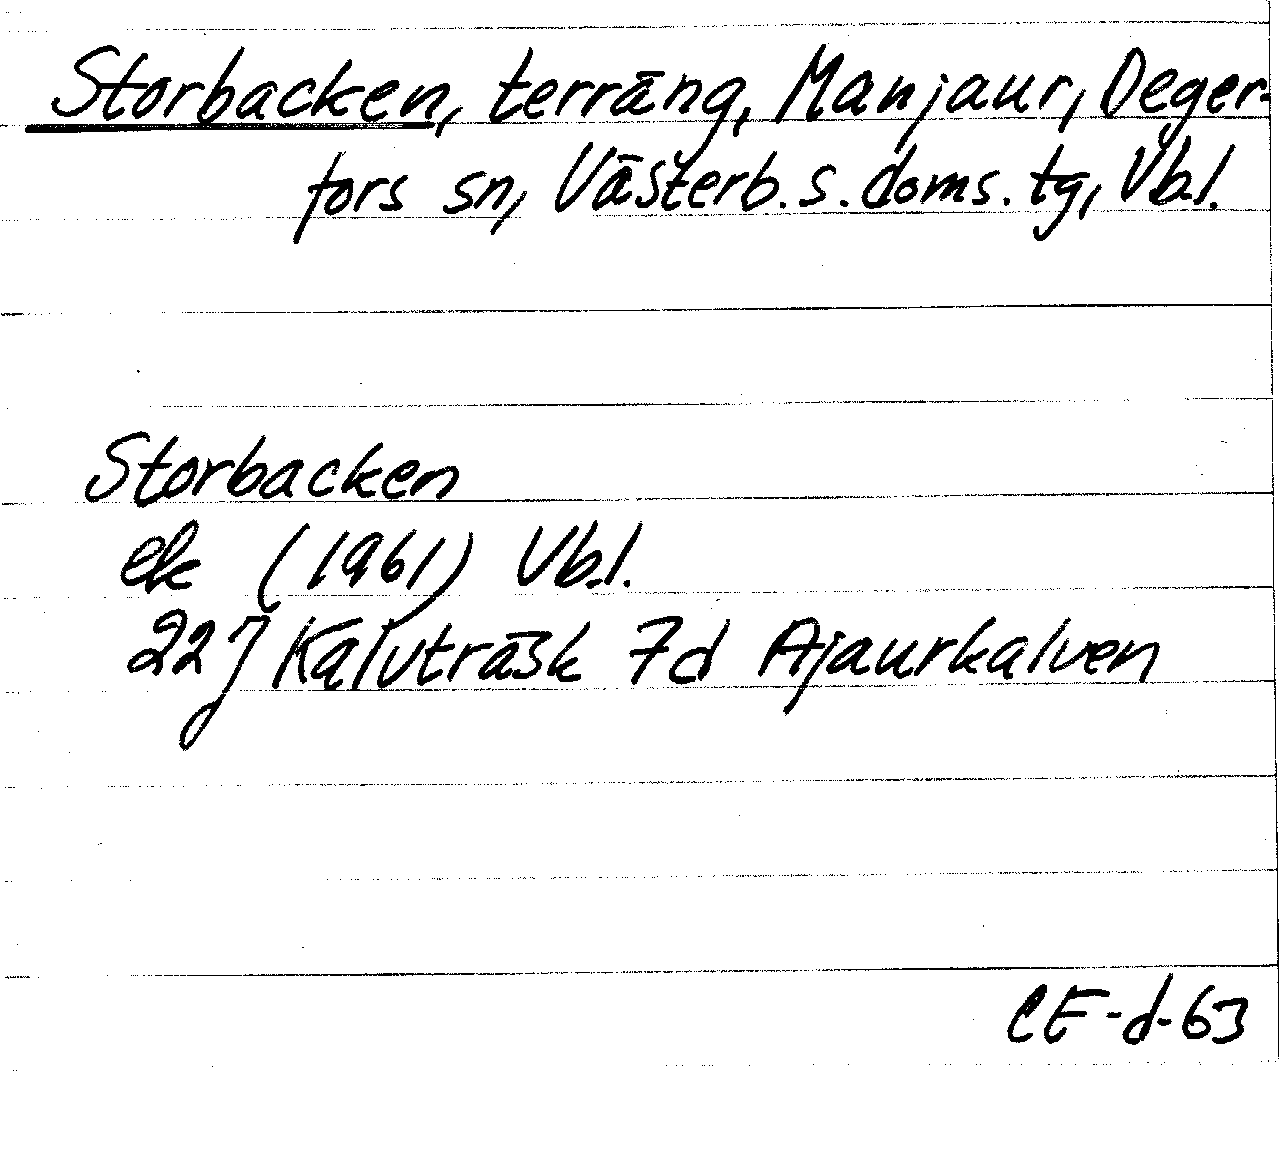 Storbacken, terräng, Manjaur, Deger-
fors sn, Västerb. s. doms. tg, Vb.l.
Storbacken
ek (1961) Vb.l.
22J Kalvträsk 7d Ajaurkalven
CE-d-63